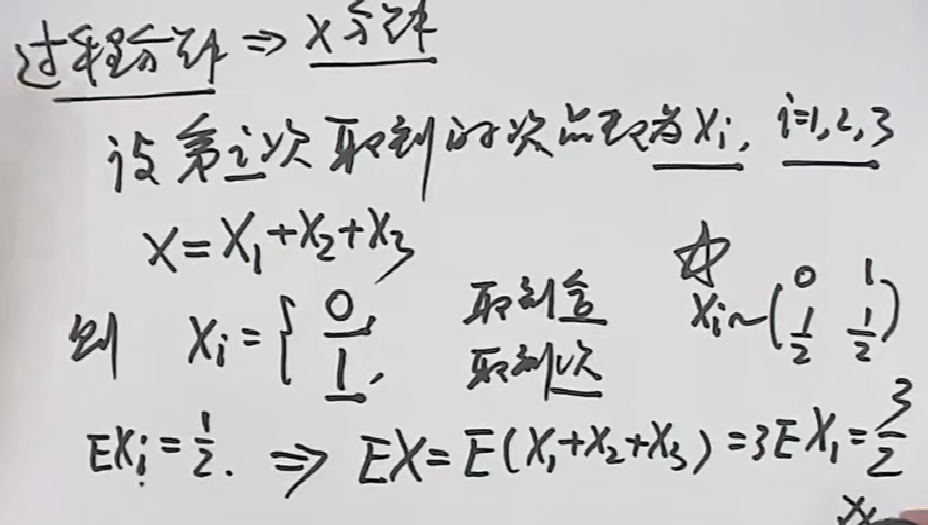 过程分解 ⇒ X分解
设第i次取到的次品数为Xi, i=1,2,3
X=X₁+X₂+X₃
则 Xi={0, 取到合 ☆ Xi~(0 1
1, 取到次 1/2 1/2)
EXi=1/2. ⇒ EX=E(X₁+X₂+X₃)=3EX₁=3/2